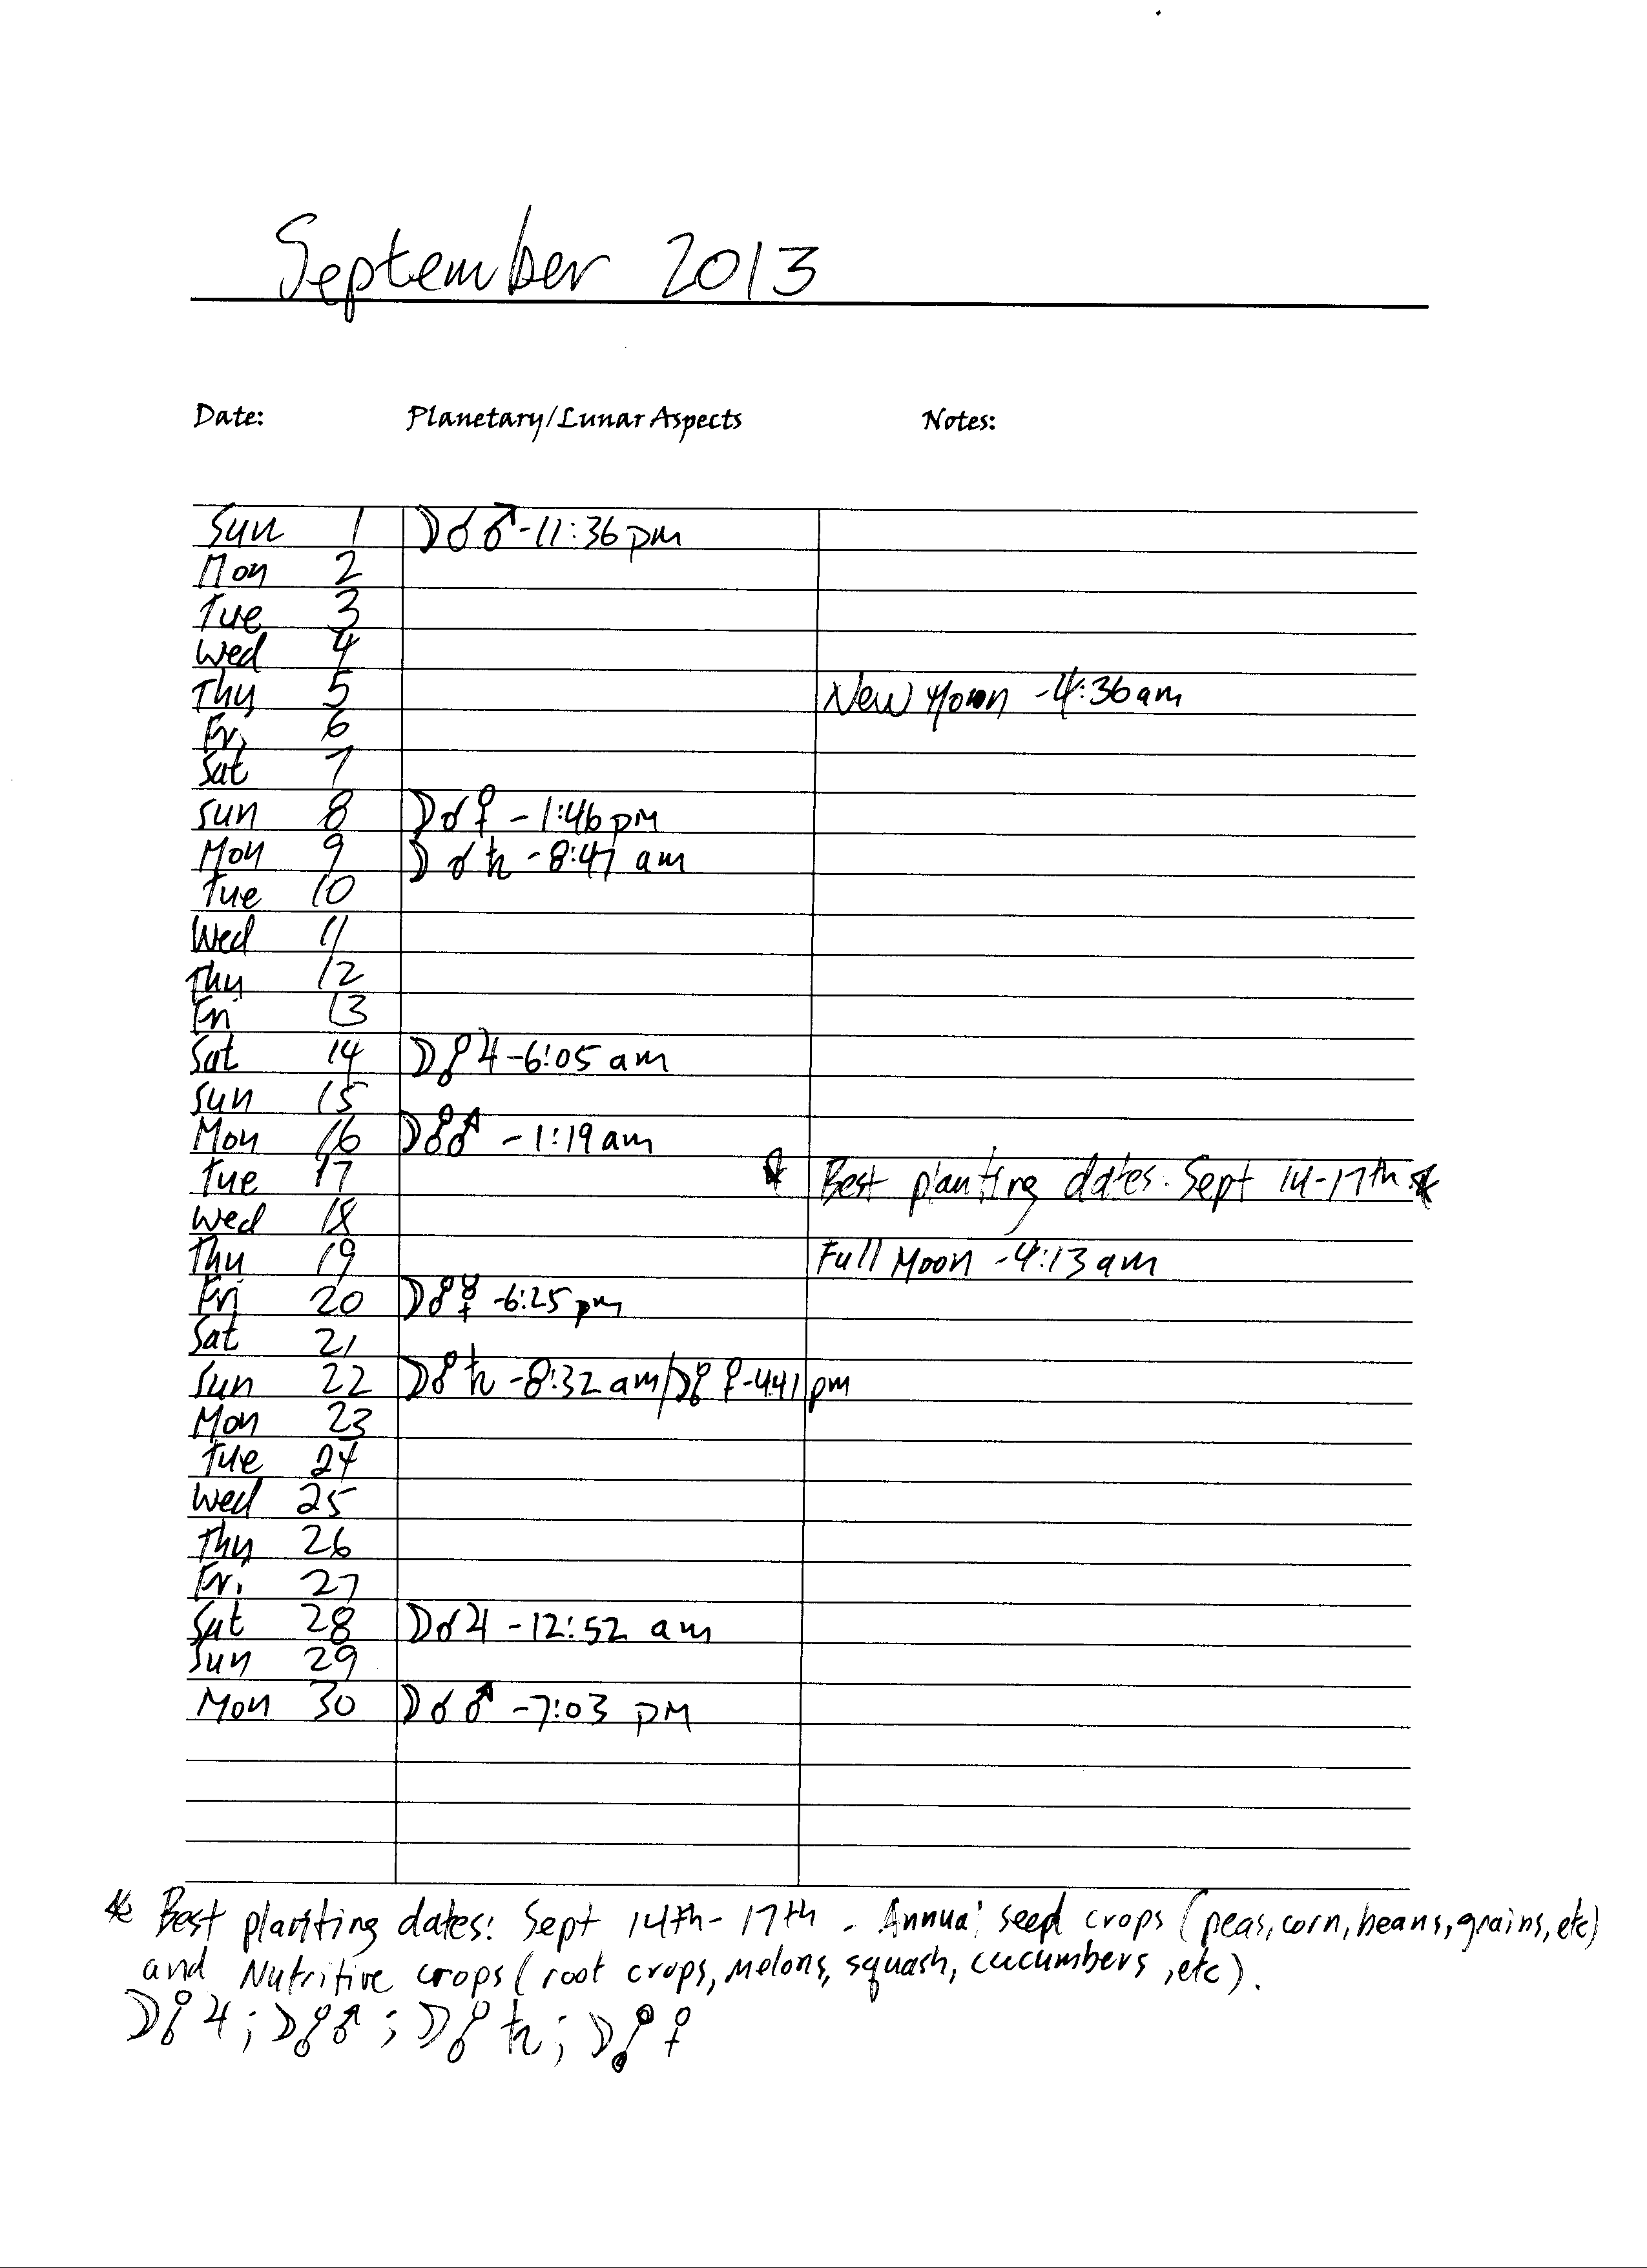 September 2013
Date: Planetary/Lunar Aspects Notes:
Sun 1 ☽☌♂-11:36pm
Mon 2
Tue 3
Wed 4
Thu 5 New Moon -4:36am
Fri 6
Sat 7
Sun 8 ☽☌♀ -1:46pm
Mon 9 ☽☌♄ -8:47 am
Tue 10
Wed 11
Thu 12
Fri 13
Sat 14 ☽☍♃-6:05 am
Sun 15
Mon 16 ☽☍♂ -1:19am
Tue 17 * Best planting dates. Sept 14-17th *
Wed 18
Thu 19 Full Moon -4:13am
Fri 20 ☽☍☿ -6:25pm
Sat 21
Sun 22 ☽☍♄ -8:32 am/☽☍♀-4:41pm
Mon 23
Tue 24
Wed 25
Thu 26
Fri. 27
Sat 28 ☽☌♃ -12:52 am
Sun 29
Mon 30 ☽☌♂ -7:03 pm
* Best planting dates: Sept 14th-17th - Annual seed crops (peas, corn, beans, grains, etc)
and Nutritive crops (root crops, melons, squash, cucumbers, etc).
☽☍♃; ☽☍♂; ☽☍♄; ☽☍♀